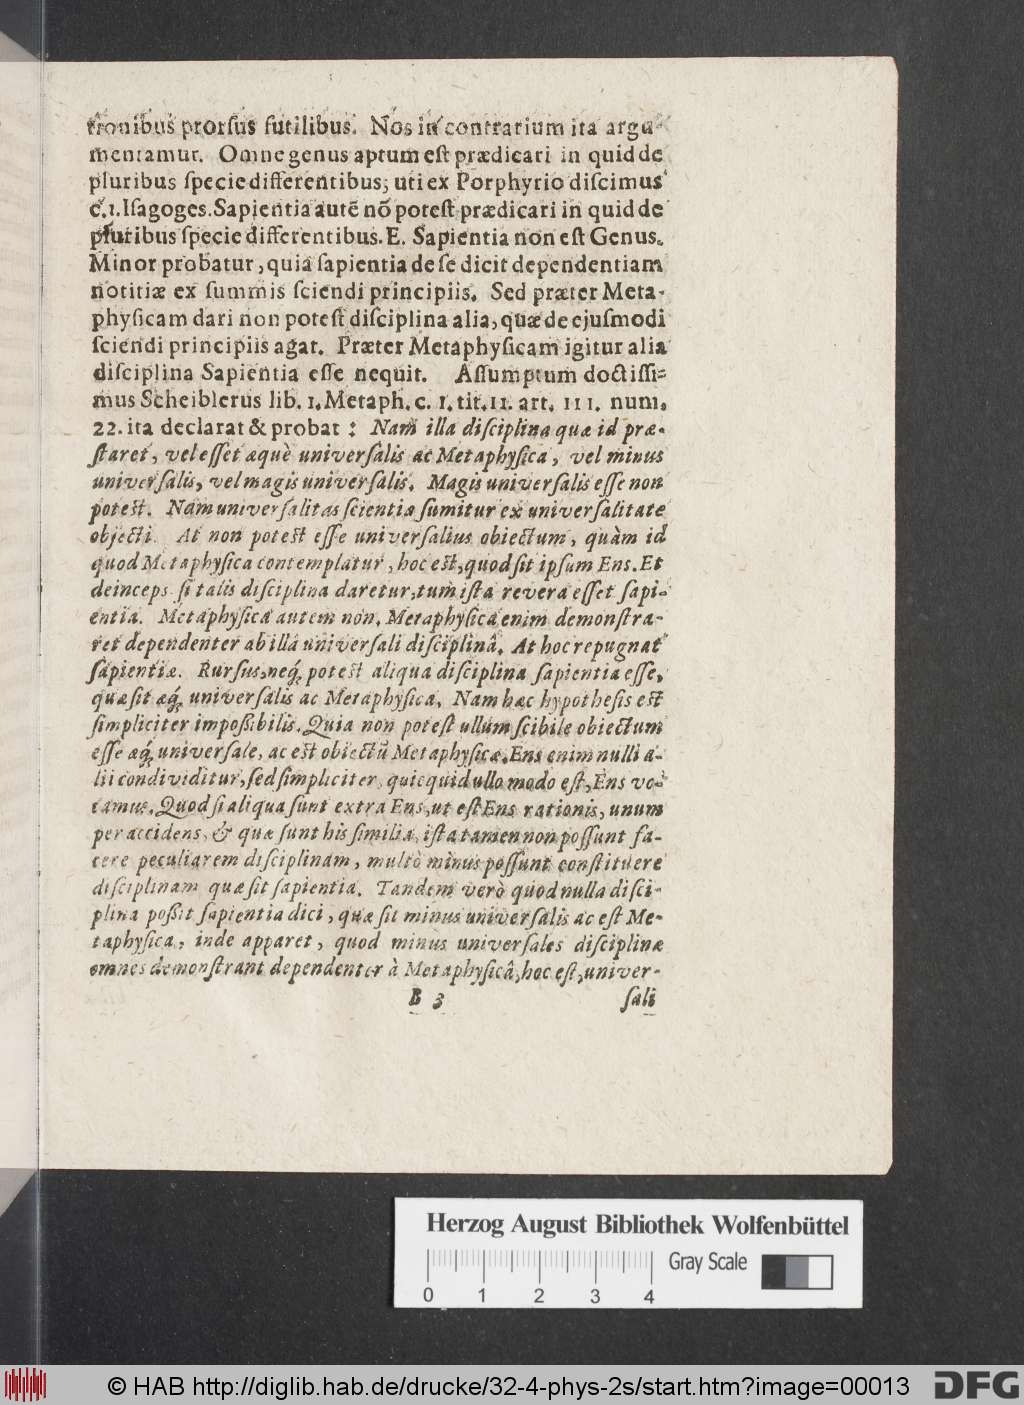 tionibus prorſus futilibus. Nos in contrarium ita argu-
mentamur. Omne genus aptum eſt prædicari in quid de
pluribus ſpecie differentibus; uti ex Porphyrio diſcimus
c.1.Iſagoges.Sapientia autē nō poteſt prædicari in quid de
pluribus ſpecie differentibus.E. Sapientia non eſt Genus.
Minor probatur, quia ſapientia de ſe dicit dependentiam
notitiæ ex ſummis ſciendi principiis. Sed præter Meta-
phyſicam dari non poteſt diſciplina alia, quæ de ejuſmodi
ſciendi principiis agat. Præter Metaphyſicam igitur alia
diſciplina Sapientia eſſe nequit. Aſſumptum doctiſſi-
mus Scheiblerus lib. 1. Metaph. c. 1. tit. 11. art. 111. num.
22. ita declarat & probat: Nam illa diſciplina quæ id præ-
ſtaret, vel eſſet æquè univerſalis ac Metaphyſica, vel minus
univerſalis, vel magis univerſalis. Magis univerſalis eſſe non
poteſt. Nam univerſalitas ſcientiæ ſumitur ex univerſalitate
objecti. At non poteſt eſſe univerſalius obiectum, quàm id
quod Metaphyſica contemplatur, hoc eſt, quod ſit ipſum Ens. Et
deinceps ſi talis diſciplina daretur, tum iſta revera eſſet ſapi-
entia. Metaphyſica autem non. Metaphyſica enim demonſtra-
ret dependenter ab illâ univerſali diſciplinâ. At hoc repugnat
ſapientiæ. Rurſus, neq́; poteſt aliqua diſciplina ſapientia eſſe,
quæ ſit æq́; univerſalis ac Metaphyſica. Nam hæc hypotheſis eſt
ſimpliciter impoßibilis. Quia non poteſt ullum ſcibile obiectum
eſſe æq́; univerſale, ac eſt obiectū Metaphyſicæ. Ens enim nulli a-
lii condividitur, ſed ſimpliciter, quicquid ullo modo eſt, Ens vo-
camus. Quod ſi aliqua ſunt extra Ens, ut eſt Ens rationis, unum
per accidens, & quæ ſunt his ſimilia, iſta tamen non poſſunt fa-
cere peculiarem diſciplinam, multò minus poſſunt conſtituere
diſciplinam quæ ſit ſapientia. Tandem verò quod nulla diſci-
plina poßit ſapientia dici, quæ ſit minus univerſalis ac eſt Me-
taphyſica, inde apparet, quod minus univerſales diſciplinæ
omnes demonſtrant dependenter à Metaphyſicâ, hoc eſt, univer-
B 3 ſali
Herzog August Bibliothek Wolfenbüttel
Gray Scale
0 1 2 3 4
© HAB http://diglib.hab.de/drucke/32-4-phys-2s/start.htm?image=00013 DFG